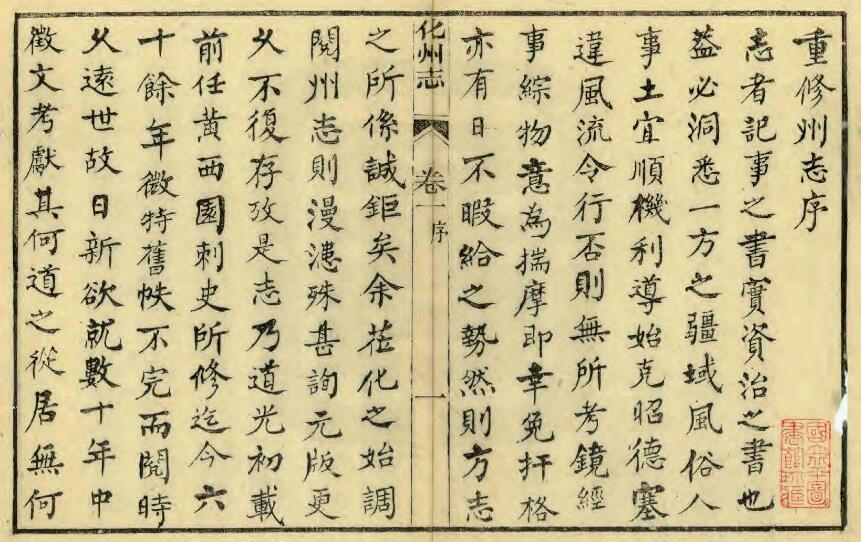 重修州志序
志者記事之書實資治之書也
葢必洞悉一方之疆域風俗人
事土宜順機利導始克昭德塞
違風流令行否則無所考鏡經
事綜物意為揣摩即幸免扞格
亦有日不暇給之勢然則方志
化州志 卷一 序 一
之所係誠鉅矣余蒞化之始調
閱州志則漫漶殊甚詢元版更
乆不復存攷是志乃道光初載
前任黃西園刺史所修迄今六
十餘年微特舊帙不完而閱時
乆遠世故日新欲就數十年中
徵文考獻其何道之從居無何